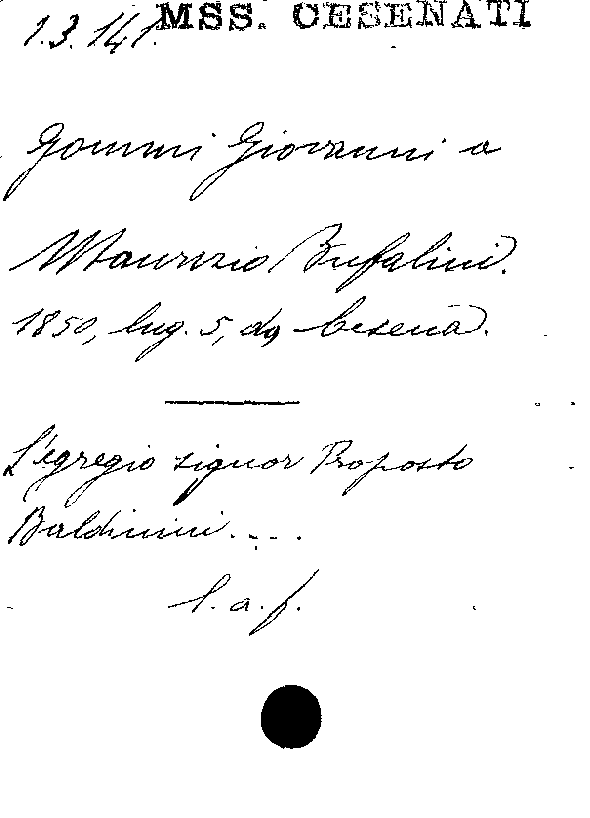 MSS. CESENATI
1.3.141.
Gommi Giovanni a
Maurizio Bufalini.
1850, lug. 5, da Cesena.
L'egregio signor Proposto
Baldinini....
l. a. f.